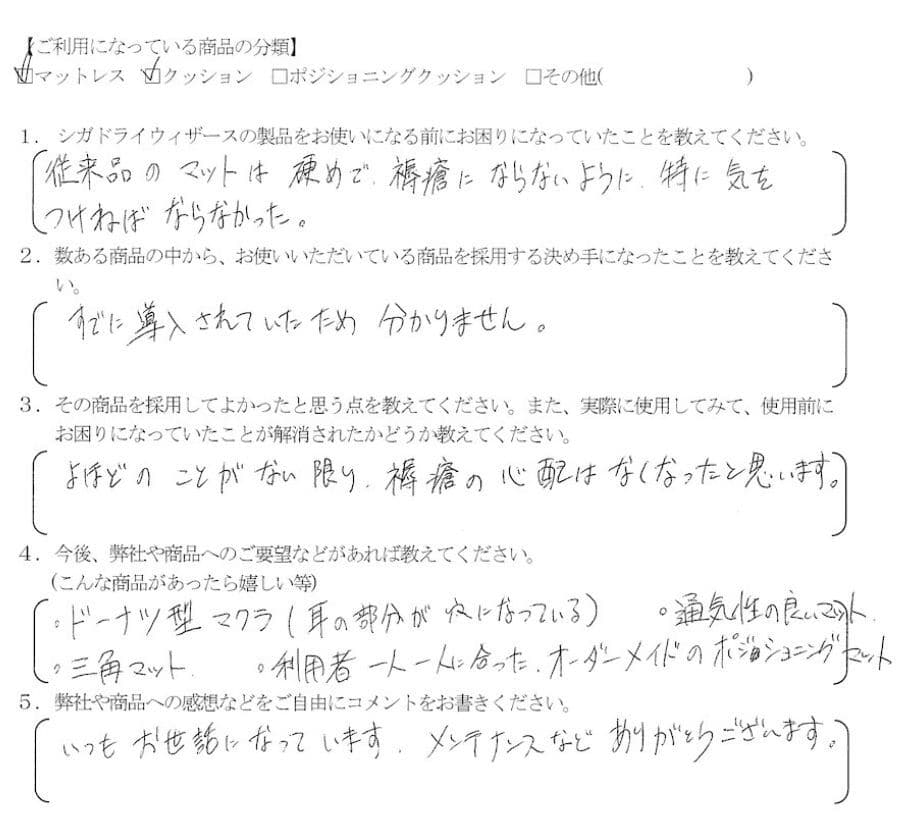 【ご利用になっている商品の分類】
☑マットレス ☑クッション □ポジショニングクッション □その他( )
1. シガドライウィザースの製品をお使いになる前にお困りになっていたことを教えてください。
従来品の マットは 硬めで、褥瘡に ならないように、特に 気を
つけねば ならなかった。
2. 数ある商品の中から、お使いいただいている商品を採用する決め手になったことを教えてくださ
い。
すでに 導入されていたため 分かりません。
3. その商品を採用してよかったと思う点を教えてください。また、実際に使用してみて、使用前に
お困りになっていたことが解消されたかどうか教えてください。
よほどの ことが ない 限り、褥瘡の 心配は なくなったと思います。
4. 今後、弊社や商品へのご要望などがあれば教えてください。
(こんな商品があったら嬉しい等)
。ドーナツ型 マクラ (耳の部分が 穴になっている) 。通気性の良いマット
。三角マット 。利用者 一人一人に合った、オーダーメイドの ポジショニングマット
5. 弊社や商品への感想などをご自由にコメントをお書きください。
いつも お世話に なって います。メンテナンスなど ありがとうございます。